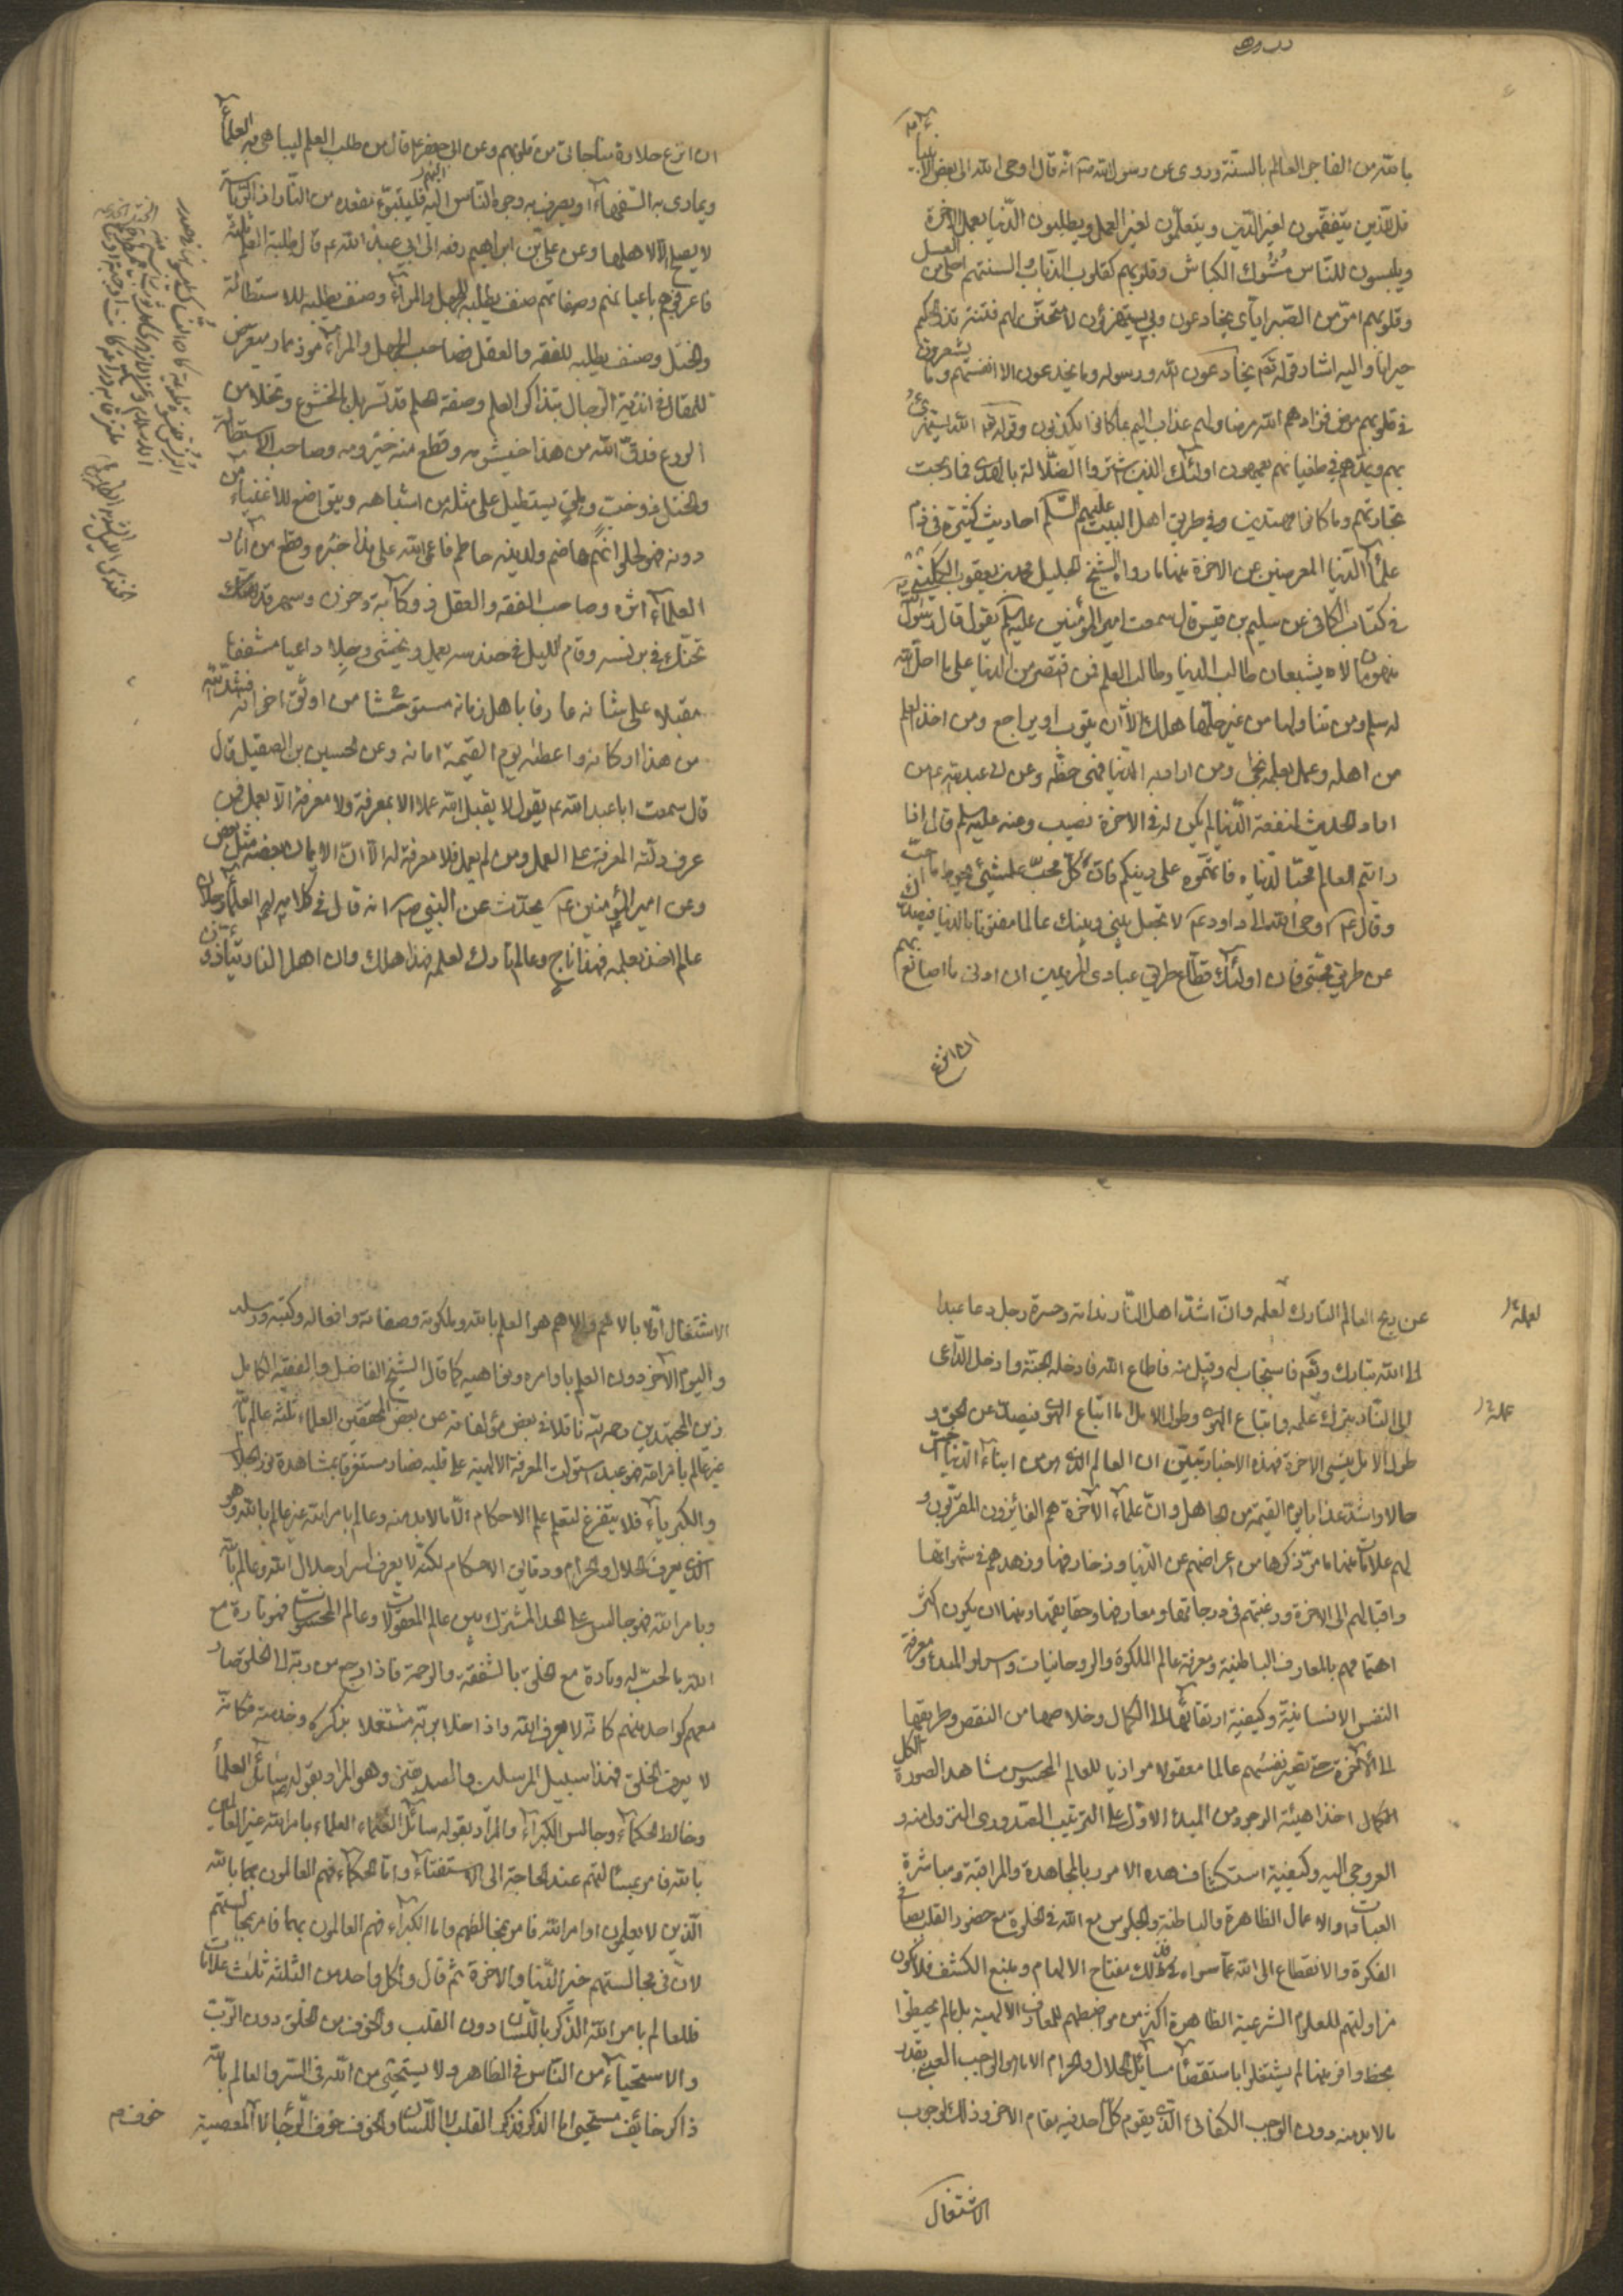 بالله من الفاجر العالم بالسنة وروى عن رسول الله صم انه قال اوحى الله الى بعض الانبياء
قل للذين يتفقهون لغير الدين ويتعلمون لغير العمل ويطلبون الدنيا بعمل الاخرة
ويلبسون للناس مسوك الكباش وقلوبهم كقلوب الذياب والسنتهم احلى من العسل
وقلوبهم امر من الصبر اياى يخادعون وبى يستهزؤن لامتحنن لهم فتنة تذر الحكيم
حيرانا واليه اشار قوله تعم يخادعون الله ورسوله وما يخدعون الا انفسهم وما يشعرون
فى قلوبهم مرض فزادهم الله مرضا ولهم عذاب اليم بما كانوا يكذبون وقوله تعم الله يستهزئ
بهم ويمدهم في طغيانهم يعمهون اولئك الذين اشتروا الضلالة بالهدى فما ربحت
تجارتهم وما كانوا مهتدين وفي طريق اهل البيت عليهم السلم احاديث كثيرة في ذم
علماء الدنيا المعرضين عن الاخرة منها ما رواه الشيخ الجليل محمد بن يعقوب الكلينى
في كتاب الكافى عن سليم بن قيس قال سمعت امير المؤمنين عليه السلم يقول قال رسول الله
منهومان لا يشبعان طالب الدنيا وطالب العلم فمن اقتصر من الدنيا على ما احل الله
له سلم ومن تناولها من غير حلها هلك الا ان يتوب او يراجع ومن اخذ العلم
من اهله وعمل بعلمه نجى ومن اراد به الدنيا فهى حظه وعن ابى عبد الله عم من
اراد الحديث لمنفعة الدنيا لم يكن له في الاخرة نصيب وعنه عليه السلم قال اذا
رايتم العالم محبا لدنياه فاتهموه على دينكم فان كل محب لشئ يحوط ما احب
وقال عم اوحى الله الى داود عم لا تجعل بينى وبينك عالما مفتونا بالدنيا فيصدك
عن طريق محبتى فان اولئك قطاع طريق عبادى المريدين ان ادنى ما اصانع بهم
ان انزع
ان انزع حلاوة مناجاتى من قلوبهم وعن ابى جعفر عم قال من طلب العلم ليباهى به العلماء
ويمارى به السفهاء او يصرف به وجوه الناس اليه فليتبوء مقعده من النار ان الرياسة
لا يصلح الا لاهلها وعن على بن ابراهيم رفعه الى ابى عبد الله عم قال طلبة العلم ثلثة
فاعرفهم باعيانهم وصفاتهم صنف يطلبه للجهل والمراء وصنف يطلبه للاستطالة
والختل وصنف يطلبه للفقه والعقل فصاحب الجهل والمراء موذ ممار متعرض
للمقال في اندية الرجال بتذاكر العلم وصفة الحلم قد تسربل بالخشوع وتخلا من
الورع فدق الله من هذا خيشومه وقطع منه حيزومه وصاحب الاستطالة
والختل ذو خب وملق يستطيل على مثله من اشباهه ويتواضع للاغنياء من
دونه فهو لحلوائهم هاضم ولدينه حاطم فاعمى الله على هذا خبره وقطع من اثار
العلماء اثره وصاحب الفقه والعقل ذو كآبة وحزن وسهر قد
تحنك في برنسه وقام الليل في حندسه يعمل ويخشى وجلا داعيا مشفقا
مقبلا على شانه عارفا باهل زمانه مستوحشا من اوثق اخوانه فشد الله
من هذا اركانه واعطاه يوم القيمة امانه وعن الحسين بن الصقيل قال
قال سمعت ابا عبد الله عم يقول لا يقبل الله عملا الا بمعرفة ولا معرفة الا بعمل فمن
عرف دلته المعرفة على العمل ومن لم يعمل فلا معرفة له الا ان الايمان بعضه من بعض
وعن امير المؤمنين عم يحدث عن النبي صم انه قال في كلام له العلماء رجلان
عالم اخذ بعلمه فهذا ناج وعالم تارك لعلمه فهذا هلك وان اهل النار يتاذون
عن ريح العالم التارك لعلمه وان اشد اهل النار ندامة وحسرة رجل دعا عبدا
لعلمه
الى الله تبارك وتعم فاستجاب له وقبل منه فاطاع الله فادخله الجنة وادخل الداعى
الى النار بترك علمه واتباع الهوى وطول الامل اما اتباع الهوى فيصد عن الحق و
علمه
طول الامل ينسى الاخرة فهذه الاخبار تبين ان العالم الذى هو من ابناء الدنيا اخس
حالا واشد عذابا يوم القيمة من الجاهل وان علماء الاخرة هم الفائزون المقربون و
لهم علامات منها ما مر ذكرها من اعراضهم عن الدنيا وزخارفها وزهدهم في شهواتها
واقبالهم الى الاخرة ورغبتهم في درجاتها ومعارفها وحقايقها ومنها ان يكون اكثر
اهتمامهم بالمعارف الباطنية ومعرفة عالم الملكوت والروحانيات واسرار المبدء ومعرفة
النفس الانسانية وكيفية ارتقائها الى الكمال وخلاصها من النقص وطريقها
الى الاخرة حتى تصير نفسهم عالما معقولا موازيا للعالم المحسوس مشاهد الصورة الكل
الكمال اخذا هيئة الوجود من المبدء الاول على الترتيب الصدورى النزولى منه و
العروجى اليه وكيفية استكشاف هذه الامور بالمجاهدة والمراقبة ومباشرة
العبادات والاعمال الظاهرة والباطنة والجلوس مع الله في الخلوة مع حضور القلب بصافى
الفكرة والانقطاع الى الله عما سواه فان ذلك مفتاح الالهام ومنبع الكشف فلا يكون
مزاولتهم للعلوم الشرعية الظاهرة اكثر من مواظبتهم للمعارف الالهية بل ما لم يحيطوا
بحظ وافر منها لم يشتغلوا باستقصاء مسائل الحلال والحرام الا بالواجب العينى بقدر
ما لا بد منه دون الواجب الكفائى الذى يقوم كل احد فيه مقام الاخر وذلك لوجوب
الاشتغال
الاشتغال اولا بالاهم والاهم هو العلم بالله وملكوته وصفاته وافعاله وكتبه ورسله
واليوم الاخر دون العلم باوامره ونواهيه كما قال الشيخ الفاضل والفقيه الكامل
زين المجتهدين رحمه الله ناقلا في بعض مؤلفاته من بعض المحققين العلماء ثلثة عالم بالله
غير عالم بامر الله فهو عبد استولت المعرفة الالهية على قلبه فصار مستغرقا بمشاهدة نور الجلال
والكبرياء فلا يتفرغ لتعلم علم الاحكام الا ما لا بد منه وعالم بامر الله غير عالم بالله وهو
الذى يعرف الحلال والحرام ودقايق الاحكام لكنه لا يعرف اسرار جلال الله وعالم بالله
وبامر الله فهو جالس على الحد المشترك بين عالم المعقولات وعالم المحسوسات فهو تارة مع
الله بالحب له وتارة مع الخلق بالشفقة والرحمة فاذا رجع من ربه الى الخلق صار
معهم كواحد منهم كانه لا يعرف الله واذا خلا بربه مشتغلا بذكره وخدمته فكانه
لا يعرف الخلق فهذا سبيل المرسلين والصديقين وهو المراد بقوله صم سائل العلماء
وخالط الحكماء وجالس الكبراء والمراد بقوله سائل العلماء العلماء بامر الله غير العالمين
بالله فامر بمسائلتهم عند الحاجة الى الاستفتاء واما الحكماء فهم العالمون بالله
الذين لا يعلمون اوامر الله فامر بمخالطتهم واما الكبراء فهم العالمون بهما فامر بمجالستهم
لان في مجالستهم خير الدنيا والاخرة ثم قال ولكل واحد من الثلثة ثلث علامات
فللعالم بامر الله الذكر باللسان دون القلب والخوف من الخلق دون الرب
والاستحياء من الناس في الظاهر ولا يستحيى من الله في السر والعالم بالله
ذاكر خائف مستحيى اما الذكر فذكر القلب لا اللسان والخوف خوف الرجاء لا المعصية
خوف م